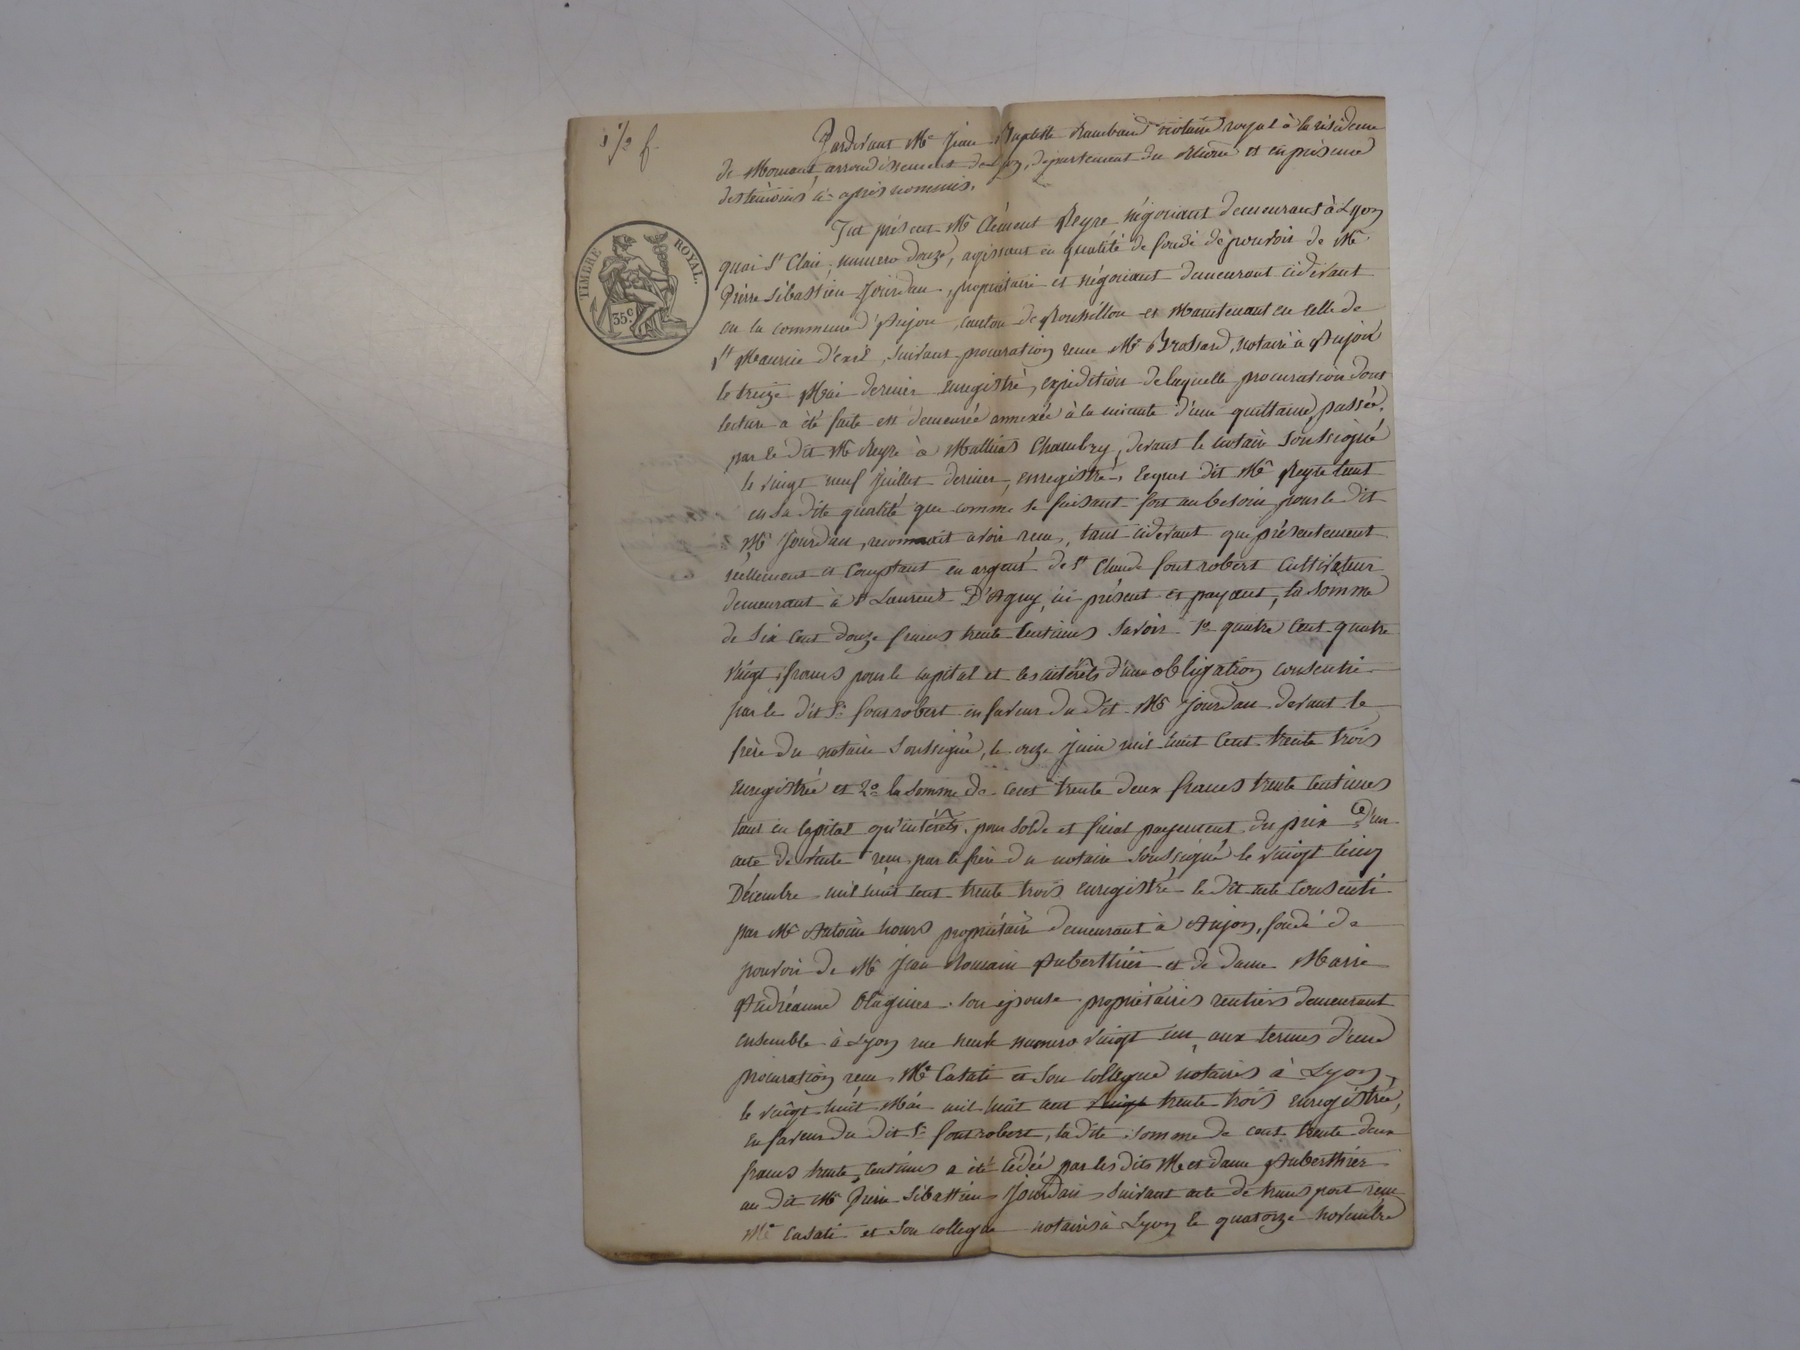 1/2 f.
Pardevant Me Jean Baptiste Rambaud notaire royal à la résidence
de Mornant, arrondissement de Lyon, département du Rhône et en présence
des témoins ci-après nommés.
TIMBRE ROYAL.
35c
Fut présent Mr Clément Reyre négociant demeurant à Lyon
quai St Clair, numero douze, agissant en qualité de fondé de pouvoir de Mr
Pierre Sébastien Jourdan, propriétaire et négociant demeurant cidevant
en la commune d'Anjou, canton de Roussillon et maintenant en celle de
St Maurice d'exil, suivant procuration reçue Me Brossard, notaire à Anjou
le treize Mai dernier enregistré, expédition de laquelle procuration dont
lecture a été faite est demeurée annexée à la minute d'une quittance passée,
par le dit Mr Reyre à Mathias Chambry, devant le notaire soussigné
le vingt neuf Juillet dernier, enregistré, lequel dit Mr Reyre tant
en sa dite qualité que comme se faisant fort au besoin pour le dit
Mr Jourdan, reconnait avoir reçu, tant cidevant que présentement
réellement et comptant en argent de Sr Claude fontrobert cultivateur
demeurant à St Laurent D'Agny, ici présent et payant, la somme
de six cent douze francs trente centimes savoir 1o quatre cent quatre
vingt francs pour le capital et les intérêts d'une obligation consentie
par le dit Sr fontrobert en faveur du dit Mr Jourdan devant le
frère du notaire soussigné, le onze juin mil huit cent trente trois
enregistrée et 2o la somme de cent trente deux francs trente centimes
tant en capital qu'intérêts, pour solde et final payement du prix d'un
acte de vente reçu par le frère du notaire soussigné le vingt cinq
Décembre mil huit cent trente trois enregistré le dit acte consenti
par Mr Antoine hours propriétaire demeurant à Anjou, fondé de
pouvoir de Mr Jean Romain Auberthier et de dame Marie
Andréanne son épouse propriétaires rentiers demeurant
ensemble à Lyon rue neuve numero vingt un, aux termes d'une
procuration reçu Me Casati et son collegue notaires à Lyon,
le vingt huit Mai mil huit cent vingt trente trois enregistrée,
en faveur du dit Sr fontrobert, la dite somme de cent trente deux
francs trente centimes a été cédée par les dits Mr et dame Auberthier
au dit Mr Pierre Sébastien Jourdan suivant acte de transport reçu
Me Casati et son collegue notaires à Lyon le quatorze novembre